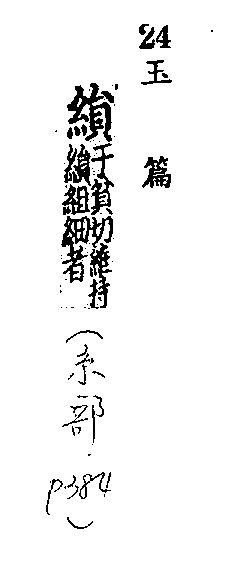 24
玉篇
縜于貧切維持
縜組細者
(糸部 p384)